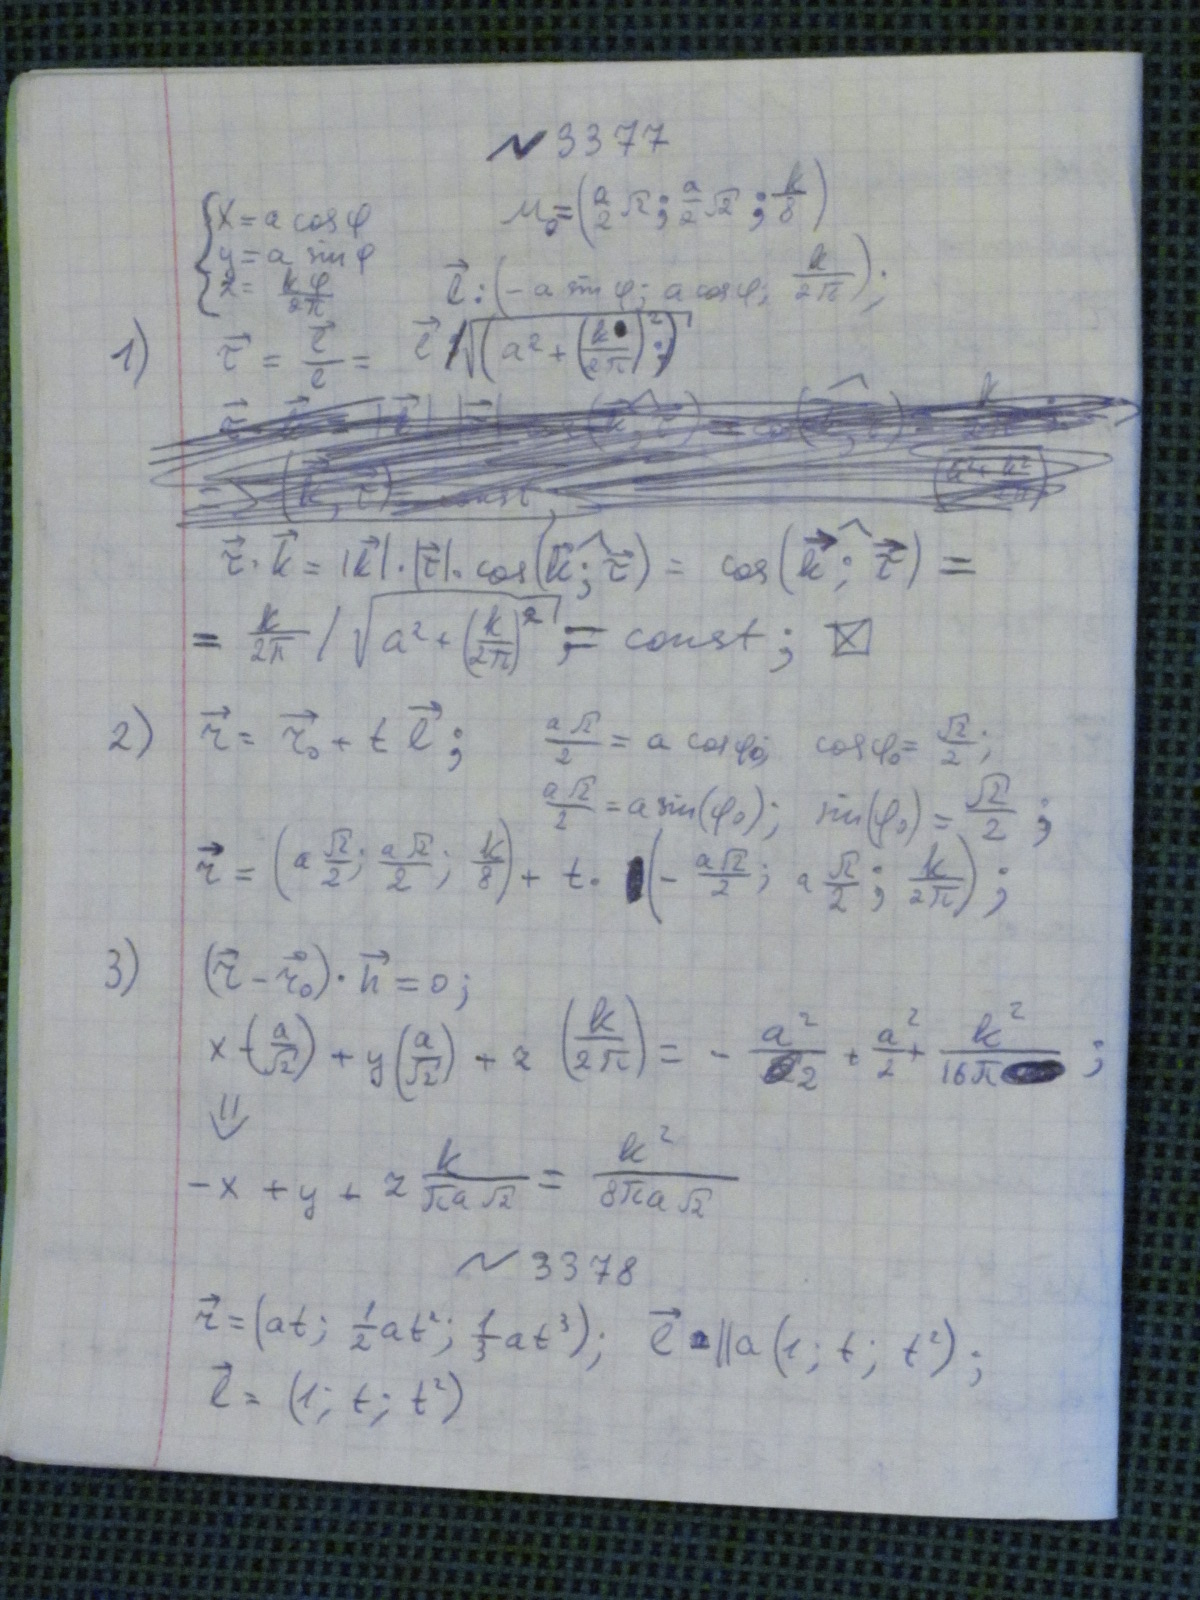 № 3377
{ x = a cos φ    M₀ = (a/2 √2; a/2 √2; k/8)
y = a sin φ
z = kφ/2π    l⃗: (-a sin φ; a cos φ; k/2π);
1) τ⃗ = l⃗/l = l⃗ / √(a² + (k/2π)²);
τ⃗ · k⃗ = |k⃗| · |τ⃗| · cos(k⃗ ; τ⃗) = cos(k⃗ ; τ⃗) =
= k/2π / √(a² + (k/2π)²) = const; ☒
2) r⃗ = r⃗₀ + t l⃗;    a√2/2 = a cos φ₀;    cos φ₀ = √2/2;
a√2/2 = a sin(φ₀);    sin(φ₀) = √2/2;
r⃗ = (a √2/2; a√2/2; k/8) + t · (- a√2/2; a √2/2; k/2π);
3) (r⃗ - r⃗₀) · n⃗ = 0;
x -(a/√2) + y(a/√2) + z (k/2π) = - a²/2 + a²/2 + k²/16π;
⇓
-x + y + z k/πa√2 = k²/8πa√2
№ 3378
r⃗ = (at; 1/2 at²; 1/3 at³);    l⃗ || a(1; t; t²);
l⃗ = (1; t; t²)